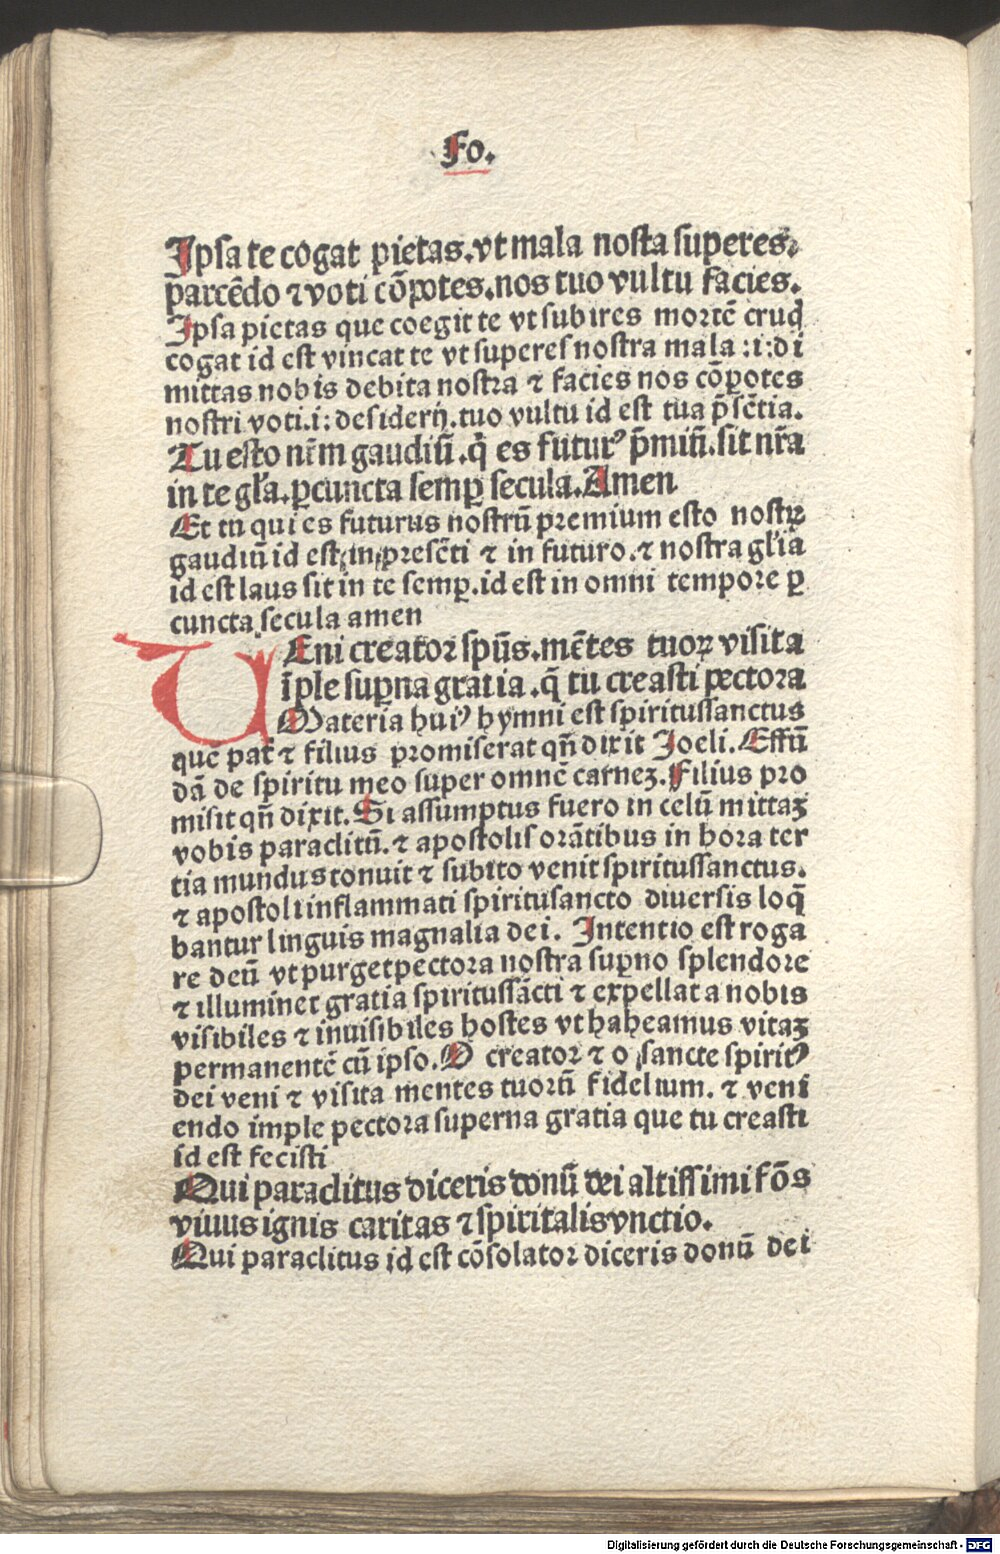 Fo.
Ipsa te cogat pietas.vt mala nosta superes.
parcēdo ⁊ voti cōpotes.nos tuo vultu facies.
Ipsa pietas que coegit te vt subires mortē crud̄
cogat id est vincat te vt superes nostra mala :i:di
mittas nobis debita nostra ⁊ facies nos cōpotes
nostri voti.i: desiderij.tuo vultu id est tua p̄sētia.
Tu esto nr̄m gaudiū.q̇ es futurꝰ p̄miū.sit nr̄a
in te gl'a.ꝑcuncta semꝑ secula.Amen
Et tu qui es futurus nostrū premium esto nostꝝ
gaudiū id est in presēti ⁊ in futuro.⁊ nostra gl'ia
id est laus sit in te semꝑ.id est in omni tempore ꝑ
cuncta secula amen
VEni creator spūs.mētes tuoꝝ visita
īple suꝑna gratia.q̄ tu creasti pectora
Materia huiꝰ hymni est spiritussanctus
quē pat̄ ⁊ filius promiserat qn̄ dixit Joeli.Effū
dā de spiritu meo super omnē carneꝫ.Filius pro
misit qn̄ dixit.Si assumptus fuero in celū mittaꝫ
vobis paraclitū.⁊ apostolis orātibus in hora ter
tia mundus tonuit ⁊ subito venit spiritussanctus.
⁊ apostoli inflammati spiritusancto diuersis loq̄
bantur linguis magnalia dei. Intentio est roga
re deū vt purget pectora nostra suꝑno splendore
⁊ illuminet gratia spiritussācti ⁊ expellat a nobis
visibiles ⁊ inuisibiles hostes vt haheamus vitaꝫ
permanentē cū ipso.O creator ⁊ o sancte spiritꝰ
dei veni ⁊ visita mentes tuorū fidelium. ⁊ veni
endo imple pectora superna gratia que tu creasti
id est fecisti
Qui paraclitus diceris donū dei altissimi fōs
viuus ignis caritas ⁊ spiritalis vnctio.
Qui paraclitus id est cōsolator diceris donū dei
Digitalisierung gefördert durch die Deutsche Forschungsgemeinschaft - DFG